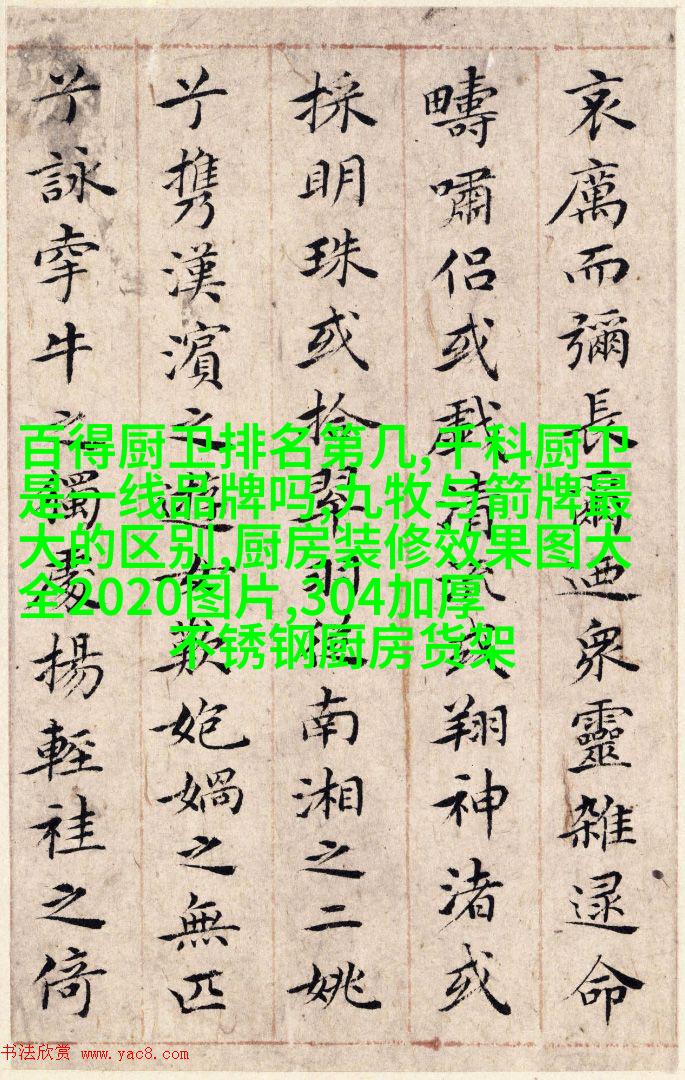 哀厲而彌長爾迺衆靈雜遝命
疇嘯侶或戲清流或翔神渚或
採明珠或拾翠羽從南湘之二姚
兮携漢濱之遊女歎媧之無匹
兮詠牽牛之獨處揚輕袿之倚
百得厨卫排名第几,千科厨卫
是一线品牌吗,九牧与箭牌最
大的区别,厨房装修效果图大
全2020图片,304加厚
不锈钢厨房货架
书法欣赏 www.yac8.com